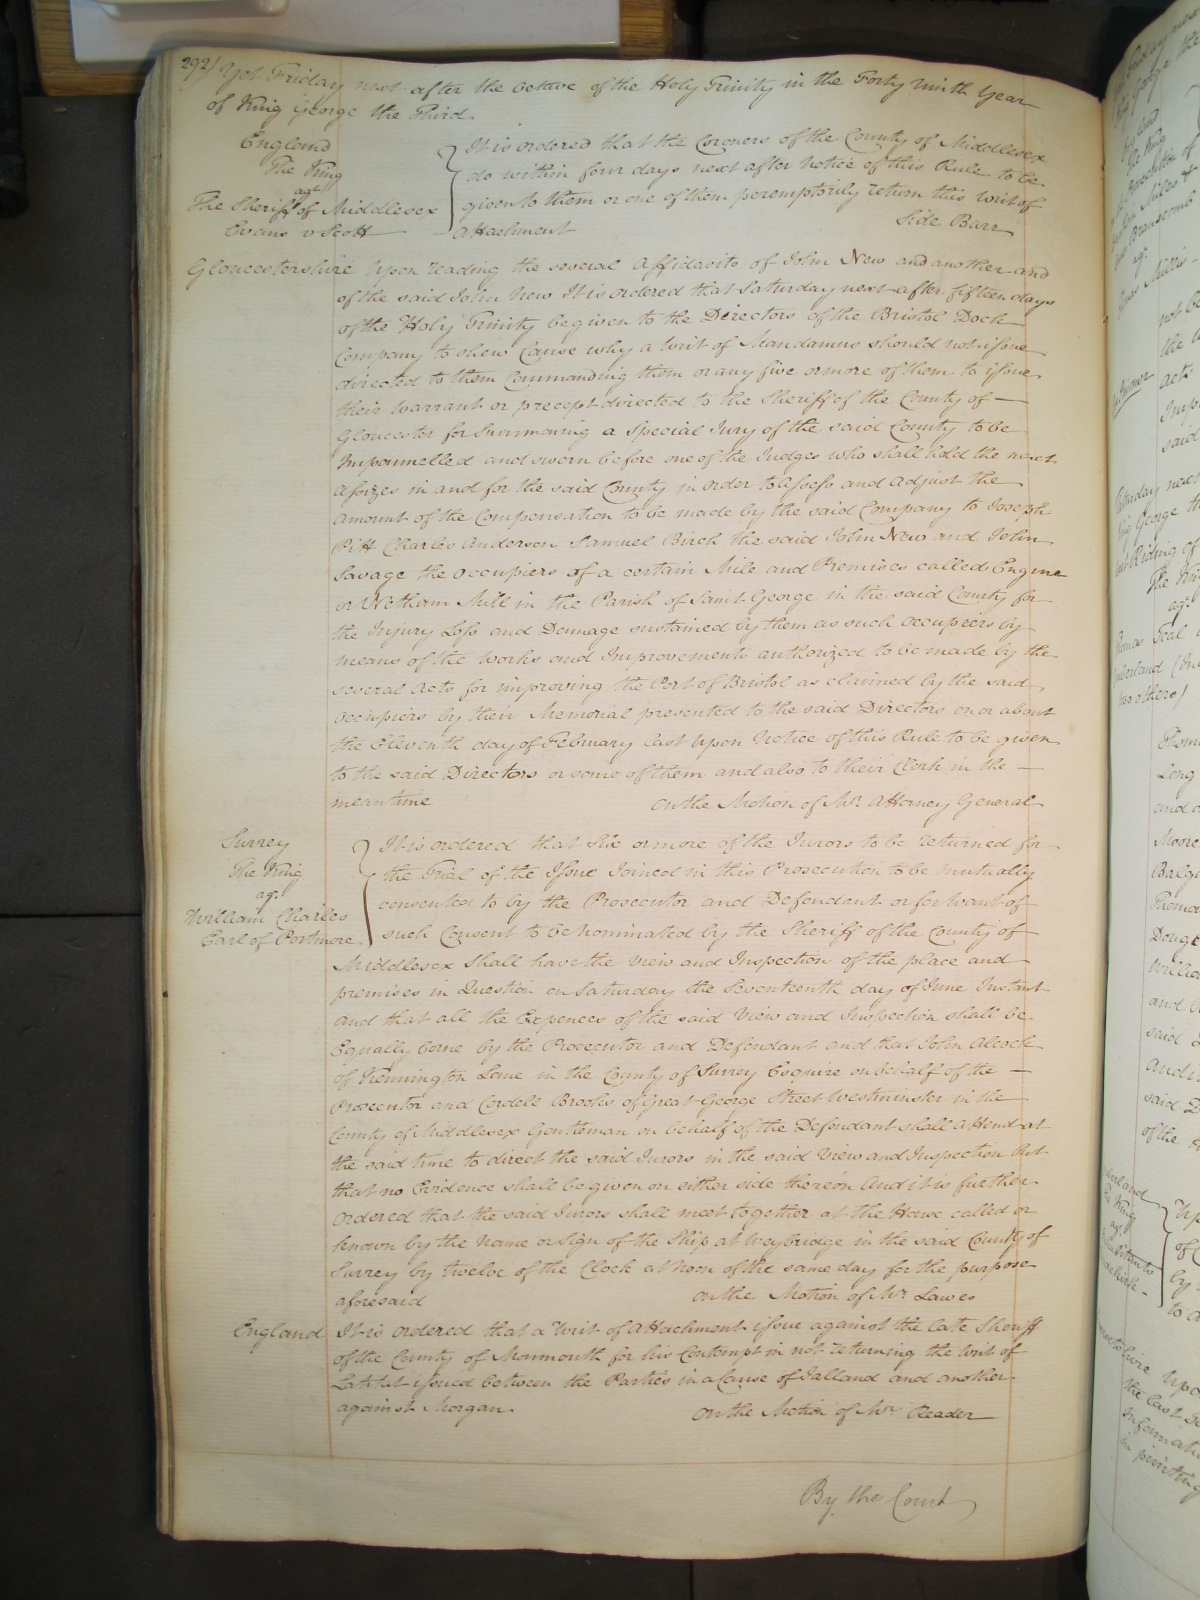 292/ Yet Friday next after the Octave of the Holy Trinity in the Forty ninth Year
of King George the Third.
England
The King
agt
The Sheriff of Middlesex
Evans v Scott
It is ordered that the Coroners of the County of Middlesex
do within four days next after Notice of this Rule to be
given to them or one of them peremptorily return this Writ of
Attachment
Side Barr
Gloucestershire Upon reading the several Affidavits of John New and another and
of the said John New It is ordered that Saturday next after fifteen days
of the Holy Trinity be given to the Directors of the Bristol Dock
Company to shew Cause why a Writ of Mandamus should not issue
directed to them Commanding them or any five or more of them to issue
their Warrant or precept directed to the Sheriff of the County of —
Gloucester for Summoning a Special Jury of the said County to be
Impannelled and sworn before one of the Judges who shall hold the next
Assizes in and for the said County in order to Assess and Adjust the
amount of the Compensation to be made by the said Company to Joseph
Pitt Charles Anderson Samuel Birch the said John New and John
Savage the Occupiers of a certain Mile and Premises called Engine
or Netham Mill in the Parish of Saint George in the said County for
the Injury Loss and Damage sustained by them as such Occupiers by
means of the Works and Improvements authorized to be made by the
several Acts for improving the Port of Bristol as claimed by the said
Occupiers by their Memorial presented to the said Directors on or about
the Eleventh day of February last Upon Notice of this Rule to be given
to the said Directors or some of them and also to their Clerk in the —
meantime
On the Motion of Mr. Attorney General
Surrey
The King
agt
William Charles
Earl of Portmore
It is ordered that Six or more of the Jurors to be returned for
the Trial of the Issue Joined in this Prosecution to be mutually
consented to by the Prosecutor and Defendant or for Want of
such Consent to be nominated by the Sheriff of the County of
Middlesex shall have the View and Inspection of the place and
premises in Question on Saturday the Seventeenth day of June Instant
and that all the Expences of the said View and Inspection shall be
Equally borne by the Prosecutor and Defendant and that John Alcock
of Kennington Lane in the County of Surrey Esquire on behalf of the —
Prosecutor and Cordell Brooks of Great George Street Westminster in the
County of Middlesex Gentleman on behalf of the Defendant shall attend at
the said time to direct the said Jurors in the said View and Inspection But
that no Evidence shall be given on either side thereon And it is further
Ordered that the said Jurors shall meet together at the House called or
known by the Name or Sign of the Ship at Weybridge in the said County of
Surrey by twelve of the Clock at Noon of the same day for the purpose
aforesaid
On the Motion of Mr. Lawes
England It is ordered that a Writ of Attachment issue against the late Sheriff
of the County of Monmouth for his Contempt in not returning the Writ of
Latitat issued between the Parties in a Cause of Jalland and another
against Morgan.
On the Motion of Mr. Reader
By the Court